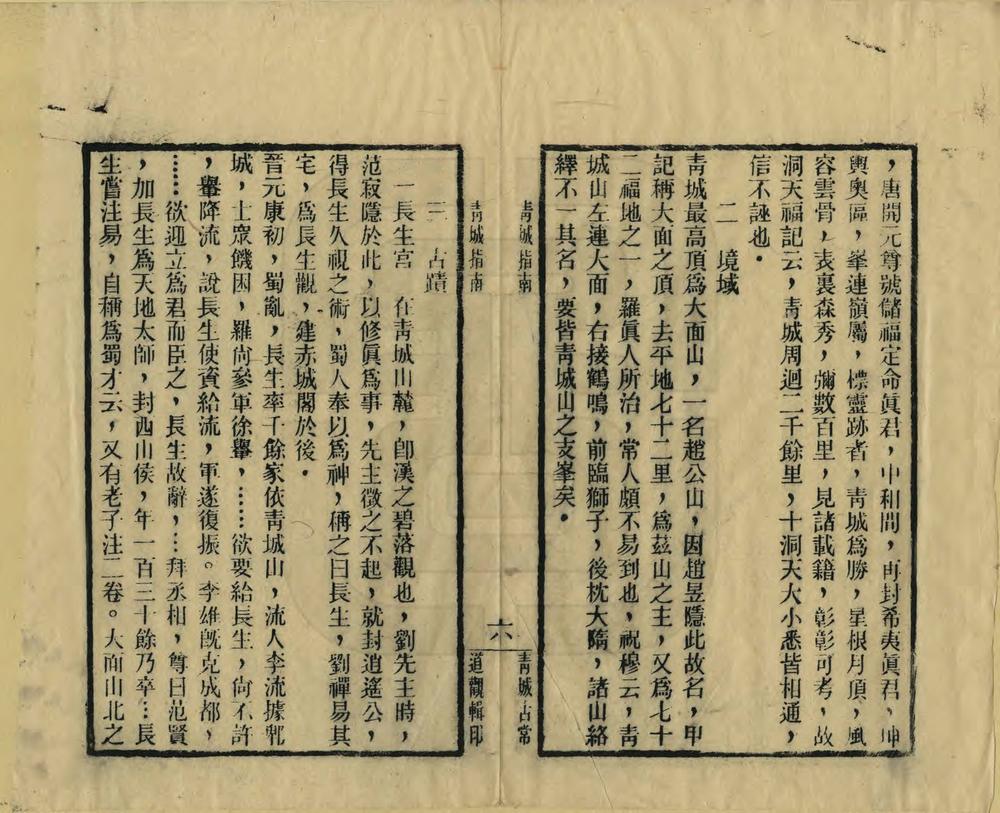 ，唐開元尊號儲福定命眞君，中和間，再封希夷眞君，坤
輿奥區，峯連嶺屬，標靈跡者，靑城爲勝，星根月頂，風
容雲骨，表裏森秀，彌數百里，見諸載籍，彰彰可考，故
洞天福記云，靑城周迴二千餘里，十洞天大小悉皆相通，
信不誣也。
二　境域
靑城最高頂爲大面山，一名趙公山，因趙昱隱此故名，甲
記稱大面之頂，去平地七十二里，爲茲山之主，又爲七十
二福地之一，羅眞人所治，常人頗不易到也，祝穆云，靑
城山左連大面，右接鶴鳴，前臨獅子，後枕大隋，諸山絡
繹不一其名，要皆靑城山之支峯矣。
靑城指南
六
靑城古常
靑城指南
道觀輯印
三　古蹟
一長生宮　在靑城山麓，卽漢之碧落觀也，劉先主時，
范寂隱於此，以修眞爲事，先主徵之不起，就封逍遙公，
得長生久視之術，蜀人奉以爲神，稱之曰長生，劉禪易其
宅，爲長生觀，建赤城閣於後。
晉元康初，蜀亂，長生率千餘家依靑城山，流人李流據郫
城，士眾饑困，羅尙參軍徐轝，……欲要給長生，尙不許
，轝降流，說長生使資給流，軍遂復振。李雄旣克成都，
……欲迎立爲君而臣之，長生故辭，…拜丞相，尊曰范賢
，加長生爲天地太師，封西山侯，年一百三十餘乃卒…長
生嘗注易，自稱爲蜀才云，又有老子注二卷。大面山北之